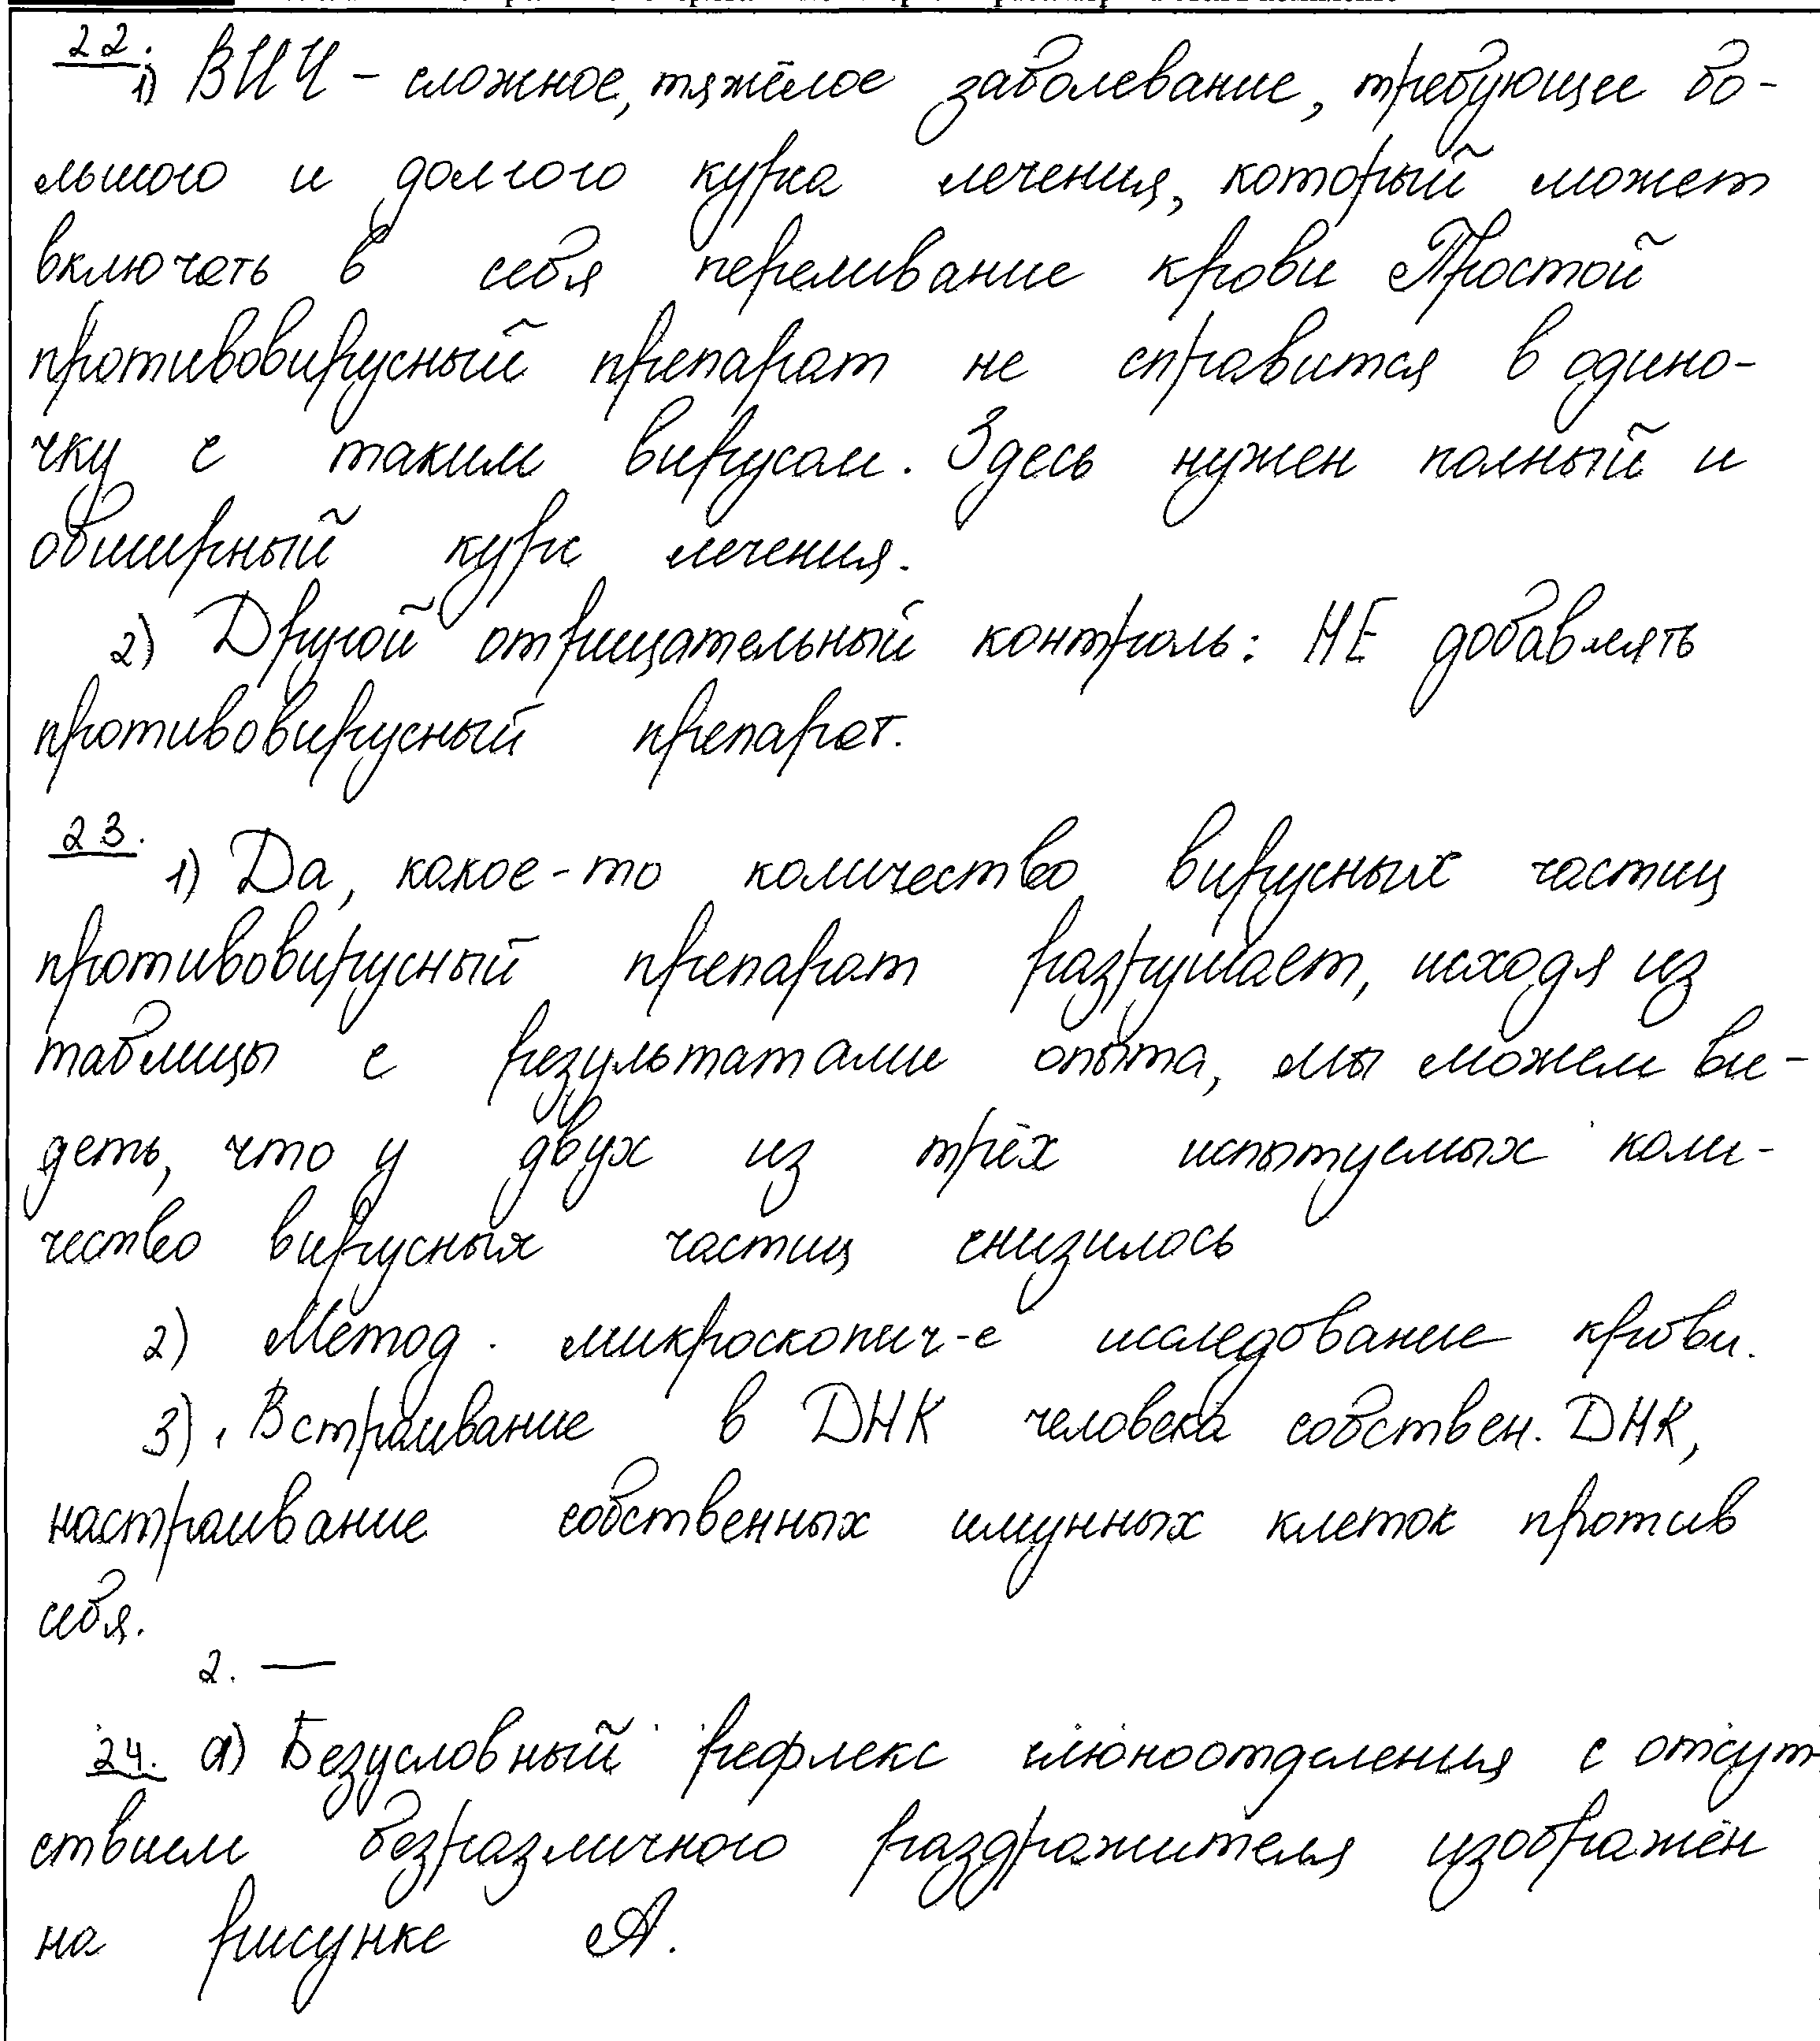 22.
1) ВИЧ – сложное, тяжёлое заболевание, требующее бо-
льшого и долгого курса лечения, который может
включать в себя переливание крови Простой
противовирусный препарат не справится в одино-
чку с таким вирусом. Здесь нужен полный и
обширный курс лечения.
2) Другой отрицательный контроль: НЕ добавлять
противовирусный препарат.
23.
1) Да, какое-то количество вирусных частиц
противовирусный препарат разрушает, исходя из
таблицы с результатами опыта, мы можем ви-
деть, что у двух из трёх испытуемых коли-
чество вирусных частиц снизилось
2) Метод. микроскопич-е исследование крови.
3) Встраивание в ДНК человека собствен. ДНК,
настраивание собственных имунных клеток против
себя.
2. —
24. а) Безусловный рефлекс слюноотделения с отсут
ствием безразличного раздражителя изображён
на рисунке А.